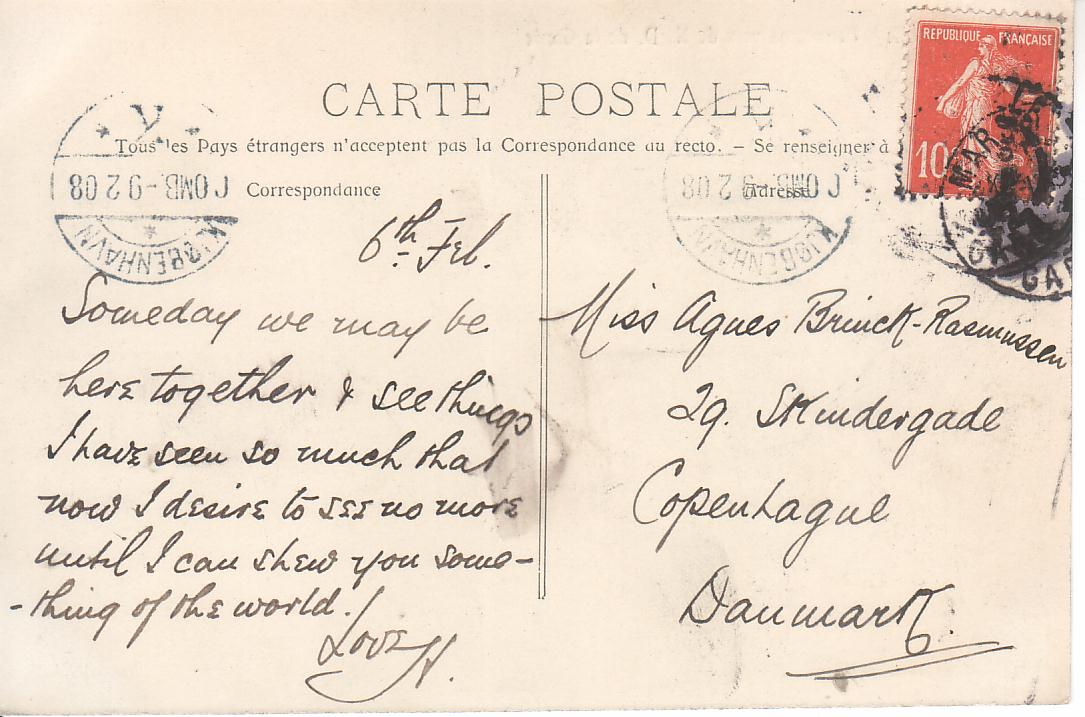 REPUBLIQUE FRANÇAISE
10
CARTE POSTALE
Tous les Pays étrangers n'acceptent pas la Correspondance au recto. – Se renseigner à
Correspondance
Adresse
KJØBENHAVN
OMB. -9 2 08
KJØBENHAVN
OMB. -9 2 08
6th Feb.
Someday we may be
here together & see things
I have seen so much that
now I desire to see no more
until I can shew you some-
-thing of the world!
Love H.
Miss Agnes Brinck-Rasmussen
29. Skindergade
Copenhague
Danmark.